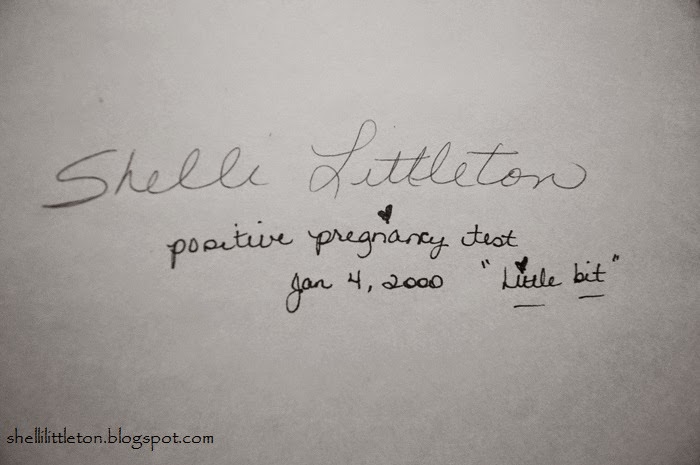 Shelli Littleton
positive pregnancy test
Jan 4, 2000 "Little bit"
shellilittleton.blogspot.com